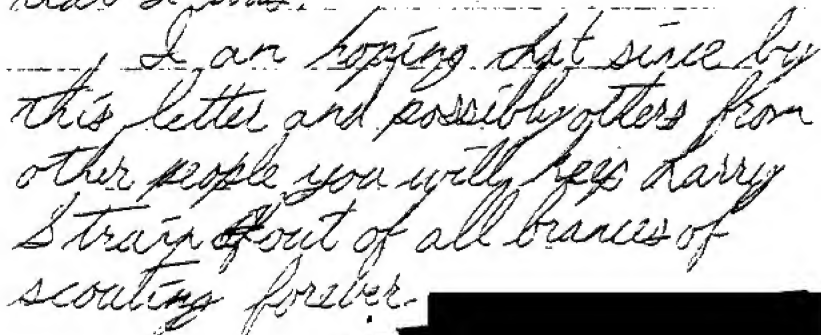 I am hoping that since by
this letter and possibly others from
other people you will keep Larry
Strain out of all brances of
scouting forever.